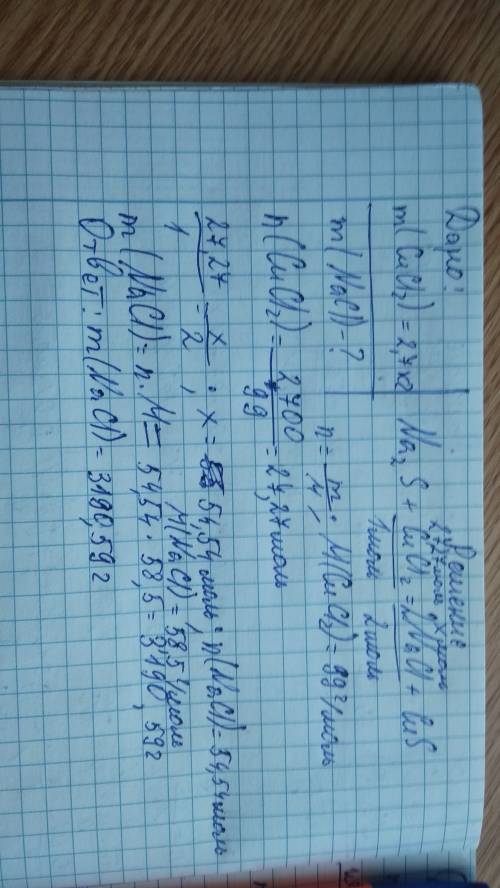 Дано: Решение
27,27 моль х моль
m(CuCl₂) = 2,7 кг Na₂S + CuCl₂ = 2NaCl + CuS
1 моль 2 моль
m(NaCl) - ? n = m/M; M(CuCl₂) = 99 г/моль
n(CuCl₂) = 2700/99 = 27,27 моль
27,27/1 = x/2; x = 54,54 моль; n(NaCl) = 54,54 моль
M(NaCl) = 58,5 г/моль
m(NaCl) = n · M = 54,54 · 58,5 = 3190,59 г
Ответ: m(NaCl) = 3190,59 г